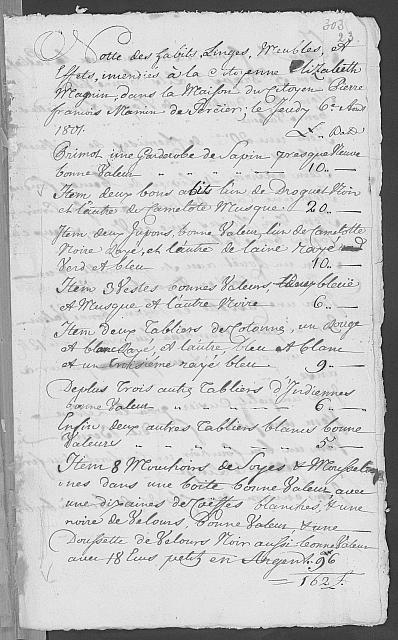 303
23
Notte des habits, Linges, Meubles, et
Effets, menées à la Citoyenne Elizabeth
Magnin, dans la Maison du Citoyen Pierre
francois Mamin de ; le Jeudy 6e
1801.
Primo, une Garderobe de Sapin presque Neuve
bonne Valeur 10 ..
Item deux bons abits l'un de Droguet Noir
et l'autre de Camelote Musque: 20 ..
Item deux Jupons, bonne Valeur, l'un de Camelotte
Noire Rayé, et l'autre de laine rayé
Verd et bleu 10 ..
Item 3 Vestes bonnes Valeurs, bleüe
et Musque et l'autre Noire 6 ..
Item deux Tabliers de Cotonne, un Rouge
et blanc Rayé, et l'autre bleu et blanc
et un troisiéme rayé bleu 9 ..
Deplus Trois autres Tabliers d'Indiennes
bonne Valeur " " " 6 ..
Enfin deux autres Tabliers blancs bonne
Valeurs " " " " 5 ..
Item 8 Mouchoirs de Soyes & Mousseli
ines dans une boite bonne Valeur, avec
une dixaines de Coëffes blanches, & une
noire de Velours, bonne Valeur & une
de Velours Noir aussi bonne Valeur
avec 18 Ecus petit en Argent. 96
= 162 f.